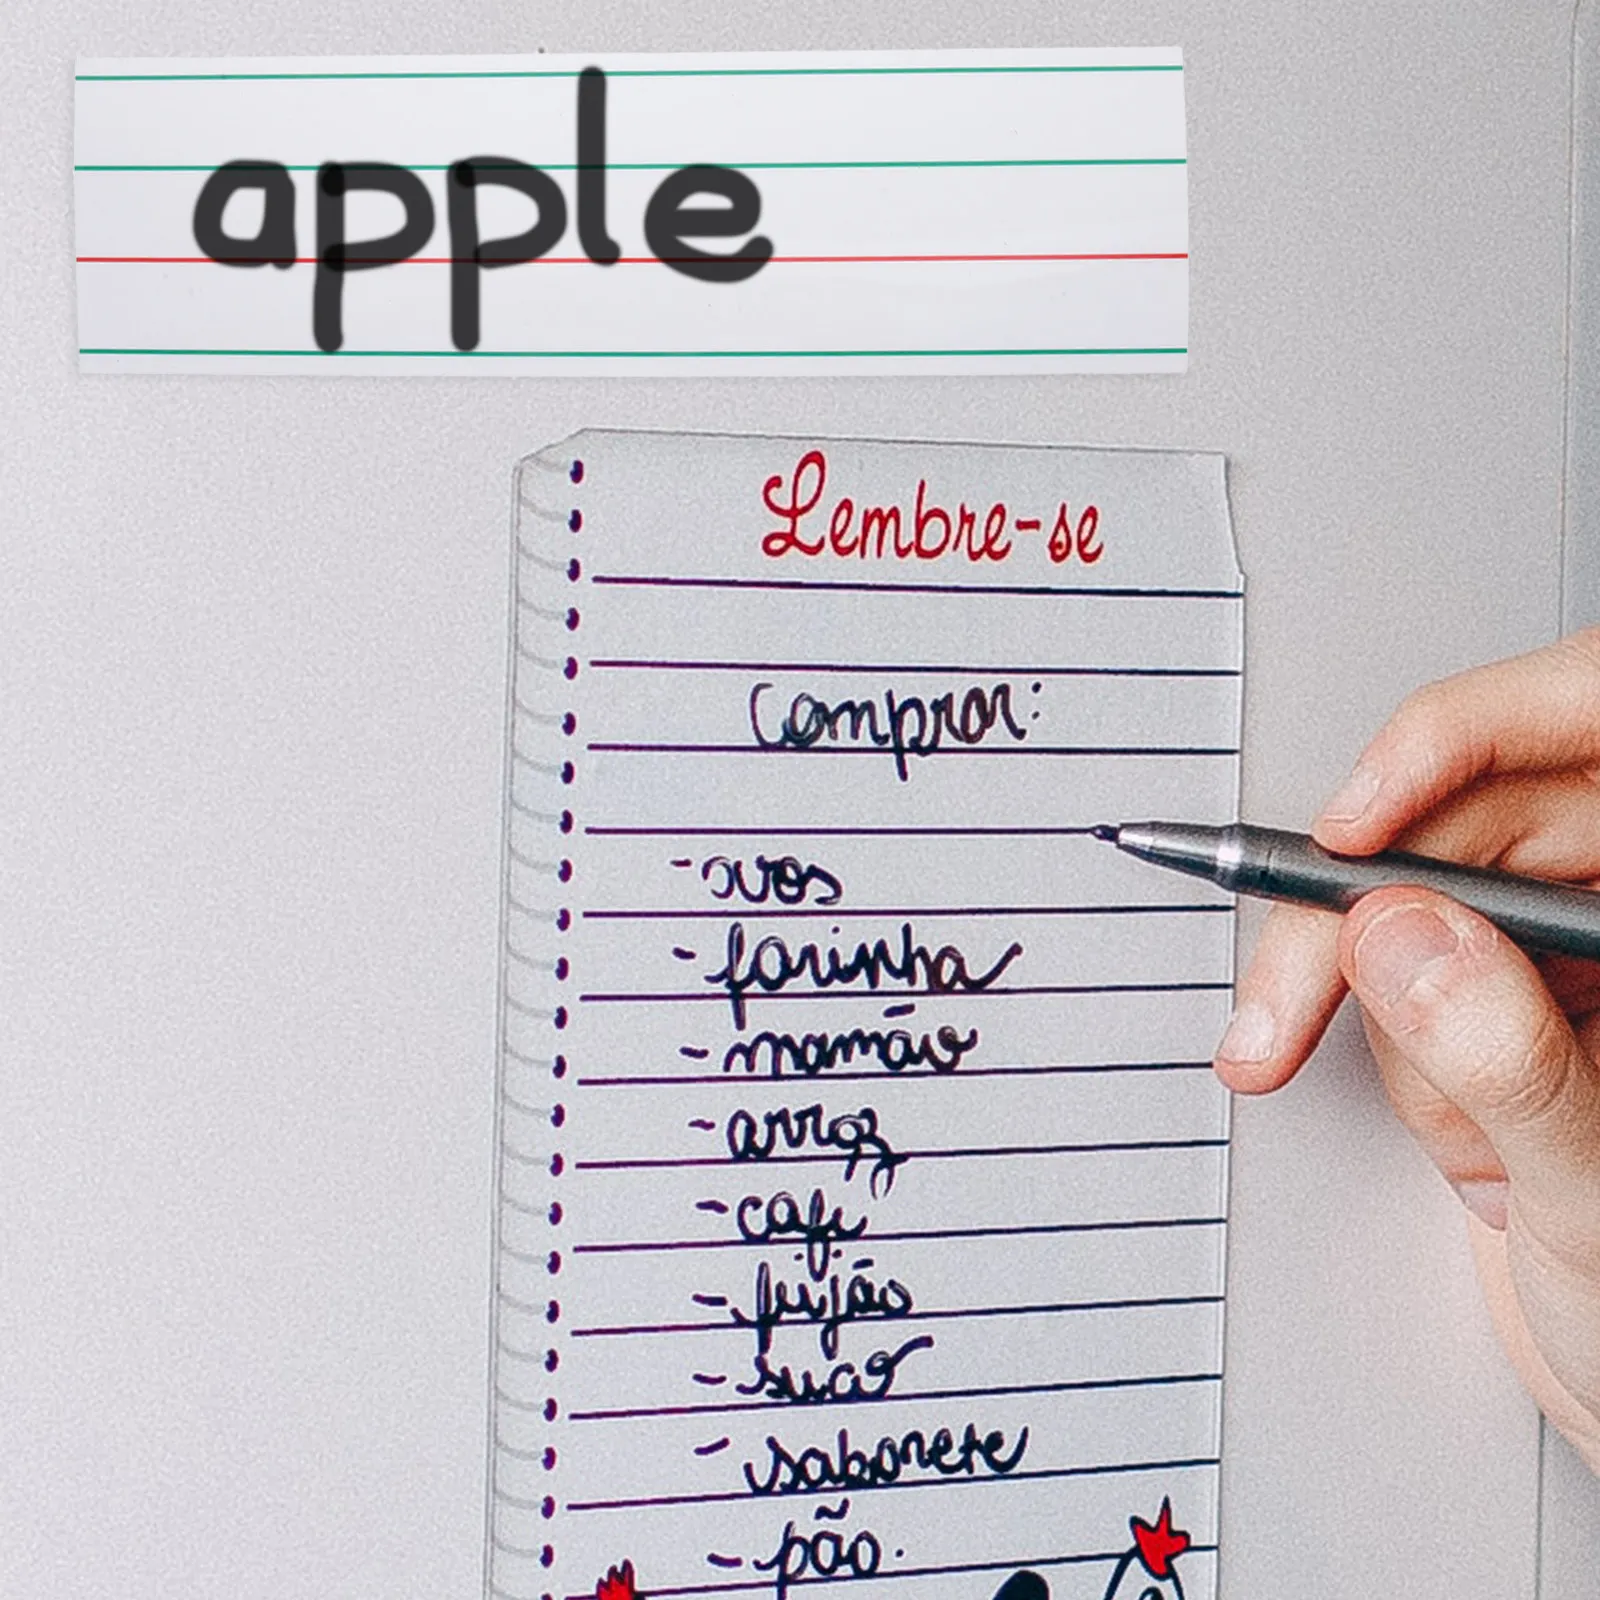 apple
Lembre-se
Comprar:
- ovos
- farinha
- mamão
- arroz
- café
- feijão
- suco
- sabonete
- pão.